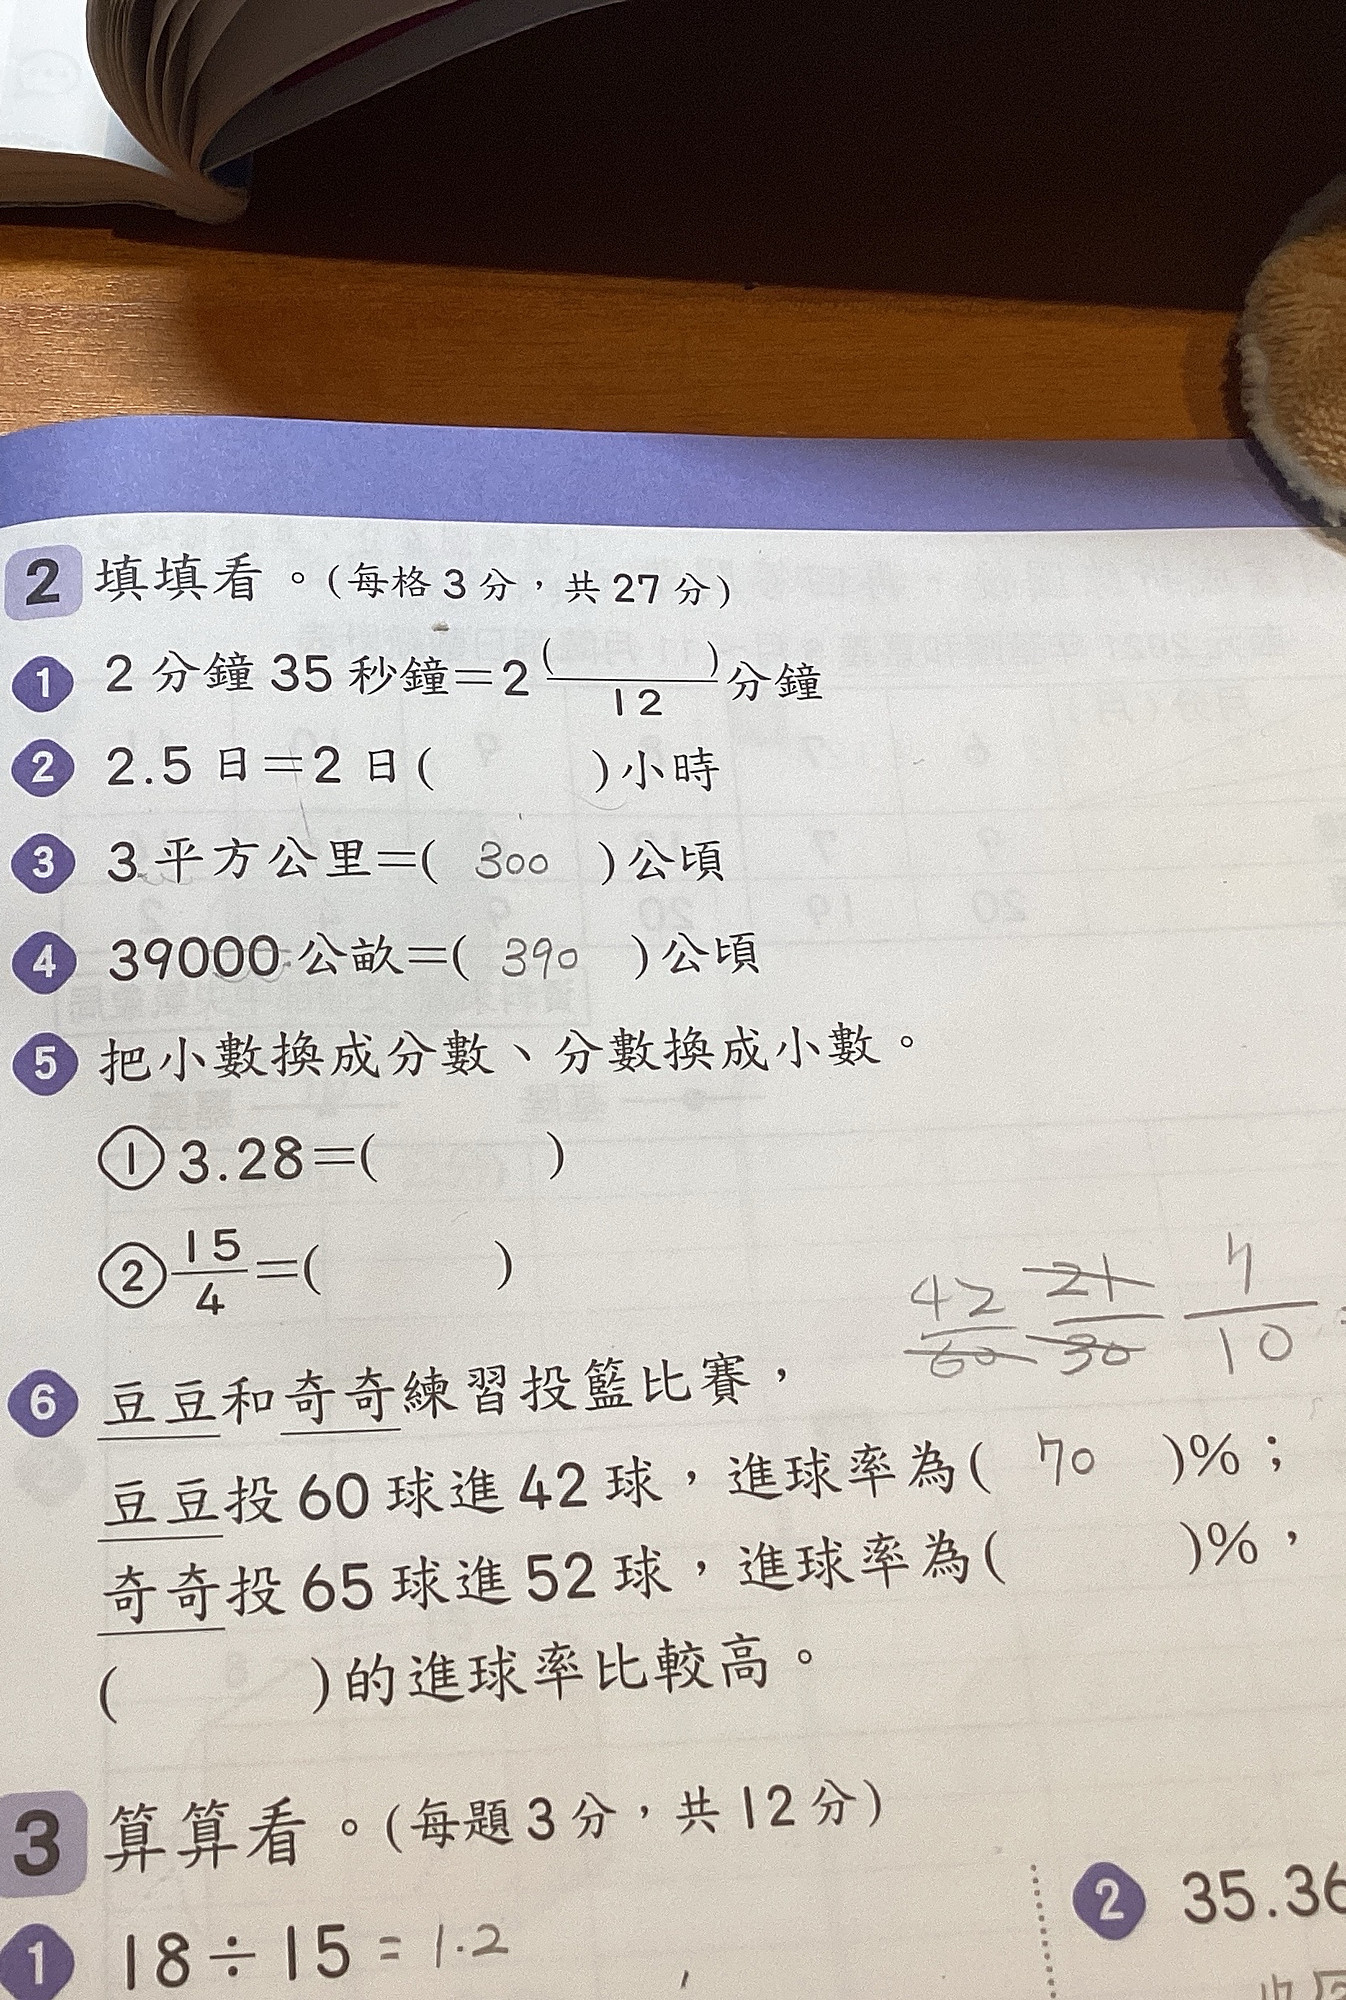 2 填填看。(每格3分，共27分)
1 2分鐘35秒鐘=2( )/12分鐘
2 2.5日=2日( )小時
3 3平方公里=( 300 )公頃
4 39000公畝=( 390 )公頃
5 把小數換成分數、分數換成小數。
① 3.28=( )
② 15/4=( )
42/60 21/30 7/10
6 豆豆和奇奇練習投籃比賽，
豆豆投60球進42球，進球率為( 70 )%；
奇奇投65球進52球，進球率為( )%，
( )的進球率比較高。
3 算算看。(每題3分，共12分)
1 18÷15 = 1.2
2 35.36